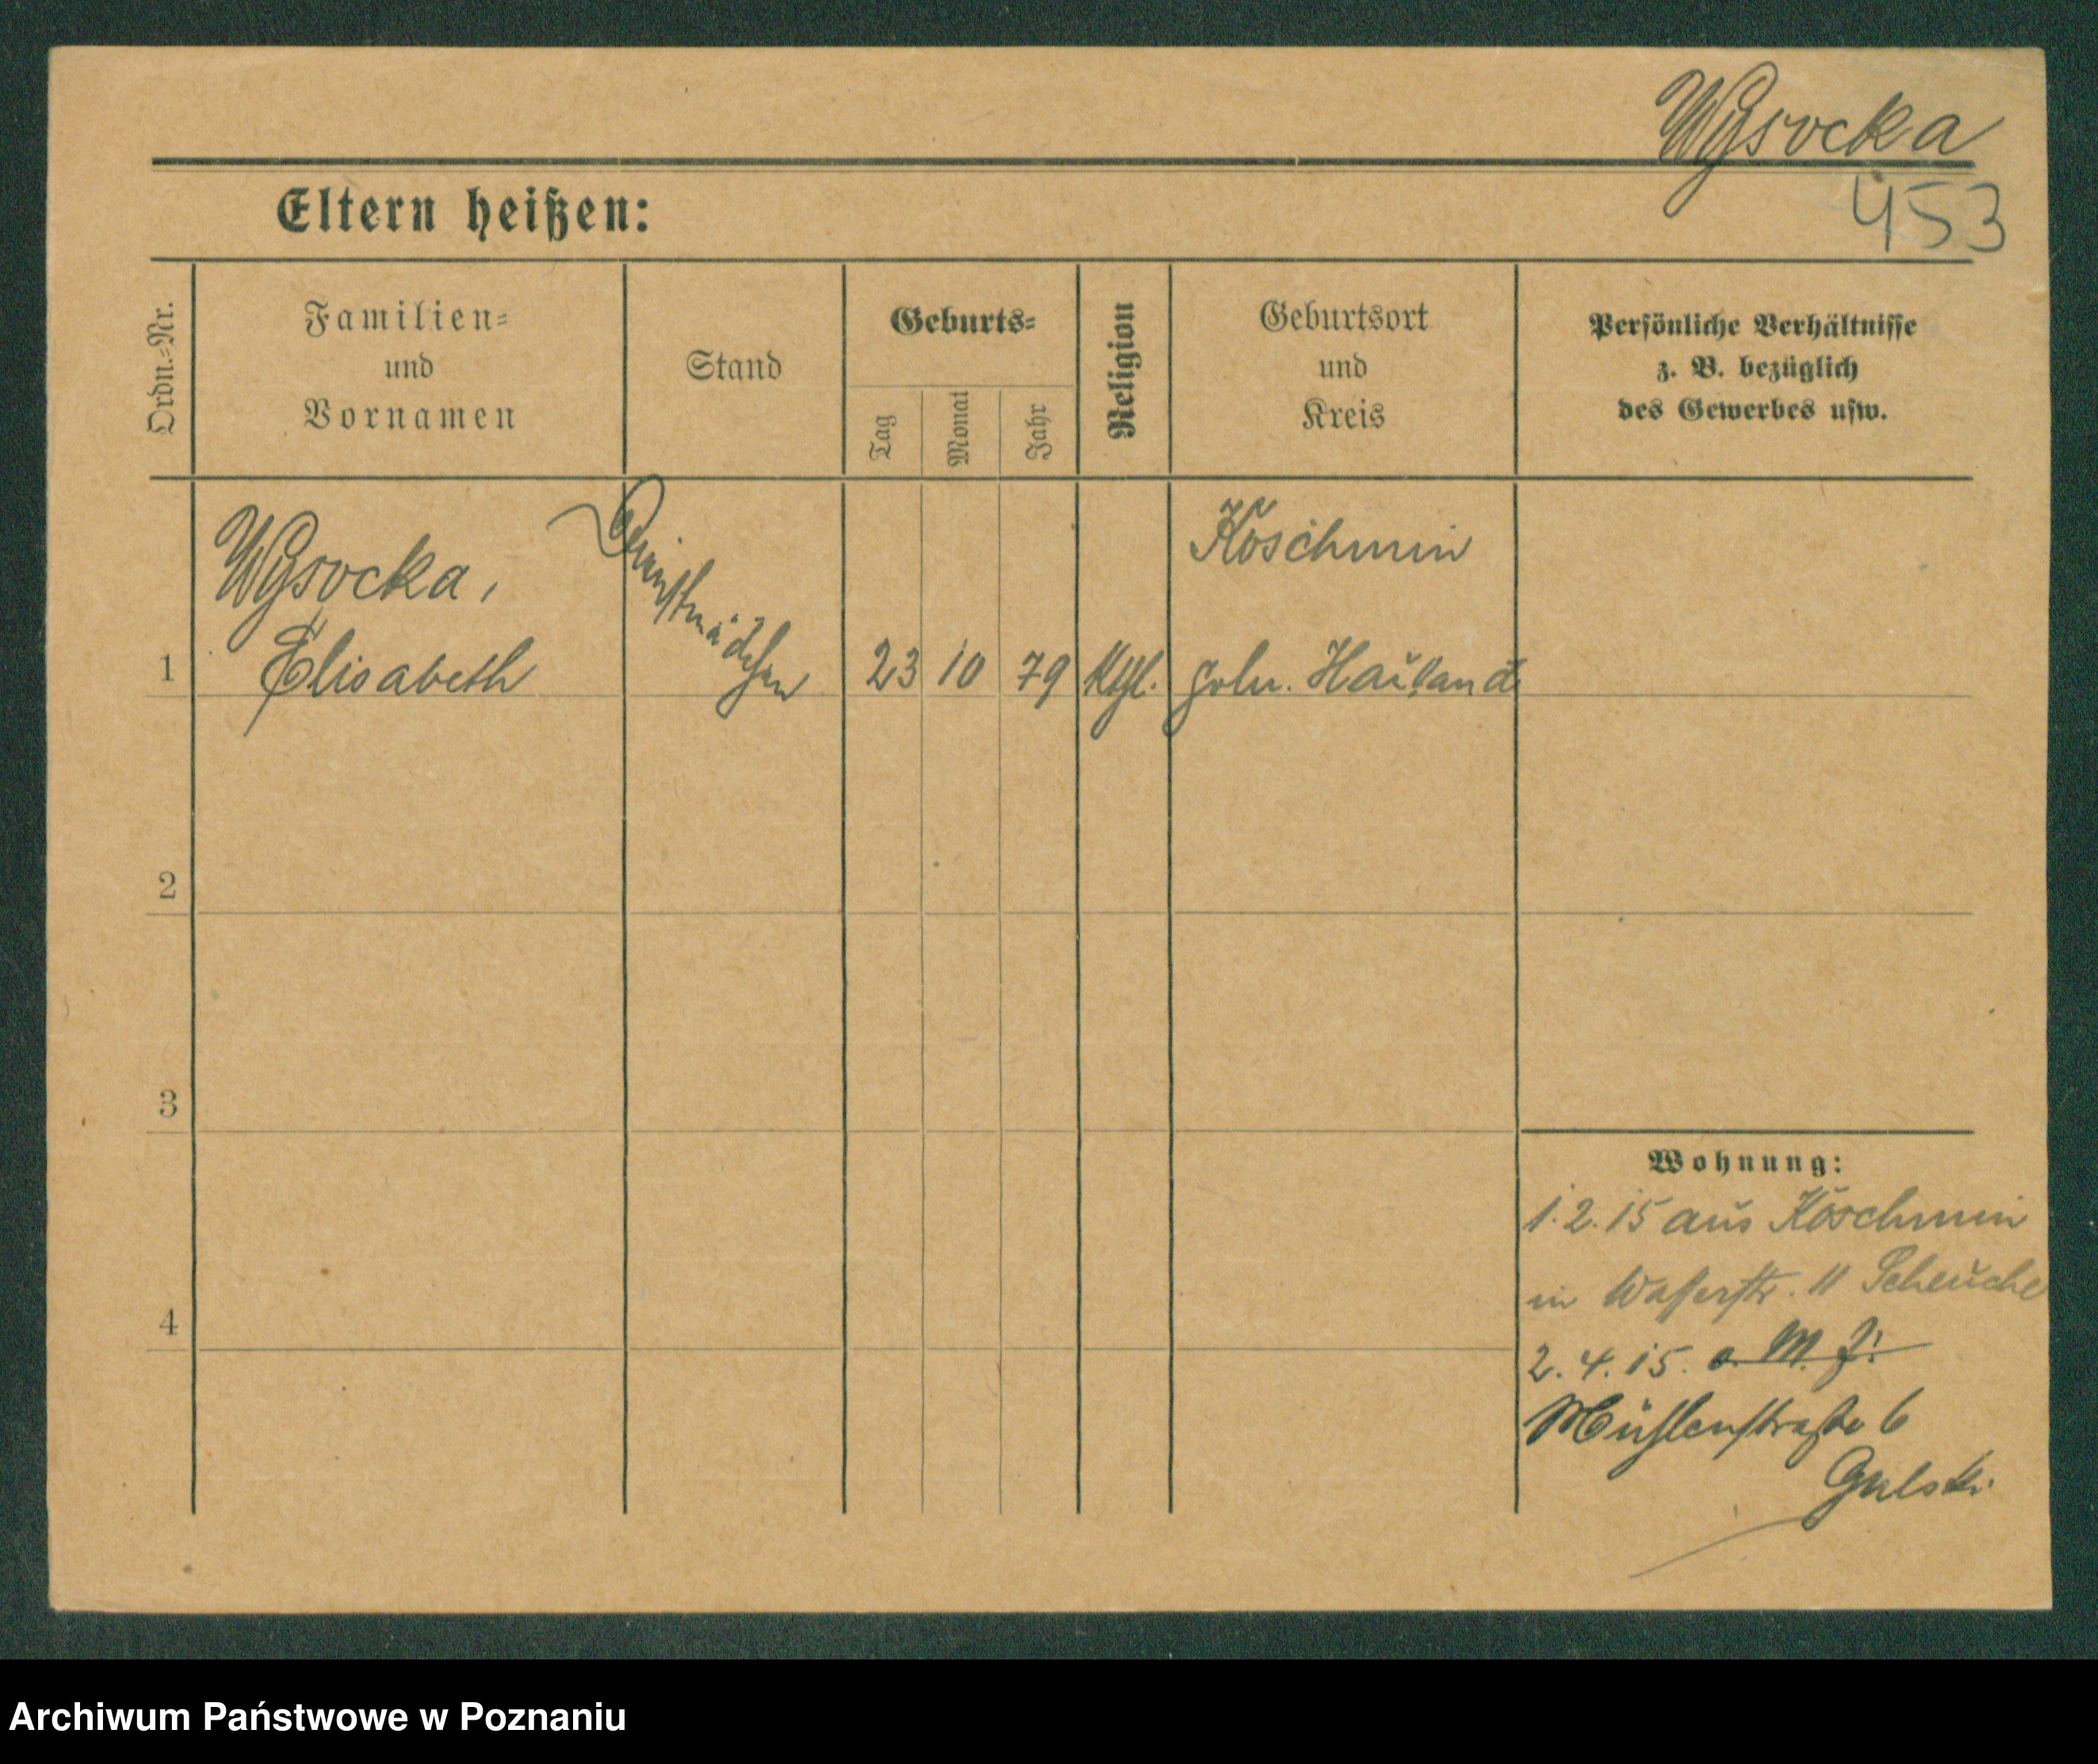 Wysocka
453
Eltern heißen:
Ordn.-Nr.
Familien-
und
Vornamen
Stand
Geburts-
Tag
Monat
Jahr
Religion
Geburtsort
und
Kreis
Persönliche Verhältnisse
z. B. bezüglich
des Gewerbes usw.
1
Wysocka,
Elisabeth
Dienstmädchen
23 10 79
Kthl.
Koschmin
gebr. Hauland
2
3
4
Wohnung:
1.2.15 aus Koschmin
in Wasserstr. 11 Scheuche
2.4.15. o. M. J.
Mühlenstraße 6
Gulski
Archiwum Państwowe w Poznaniu